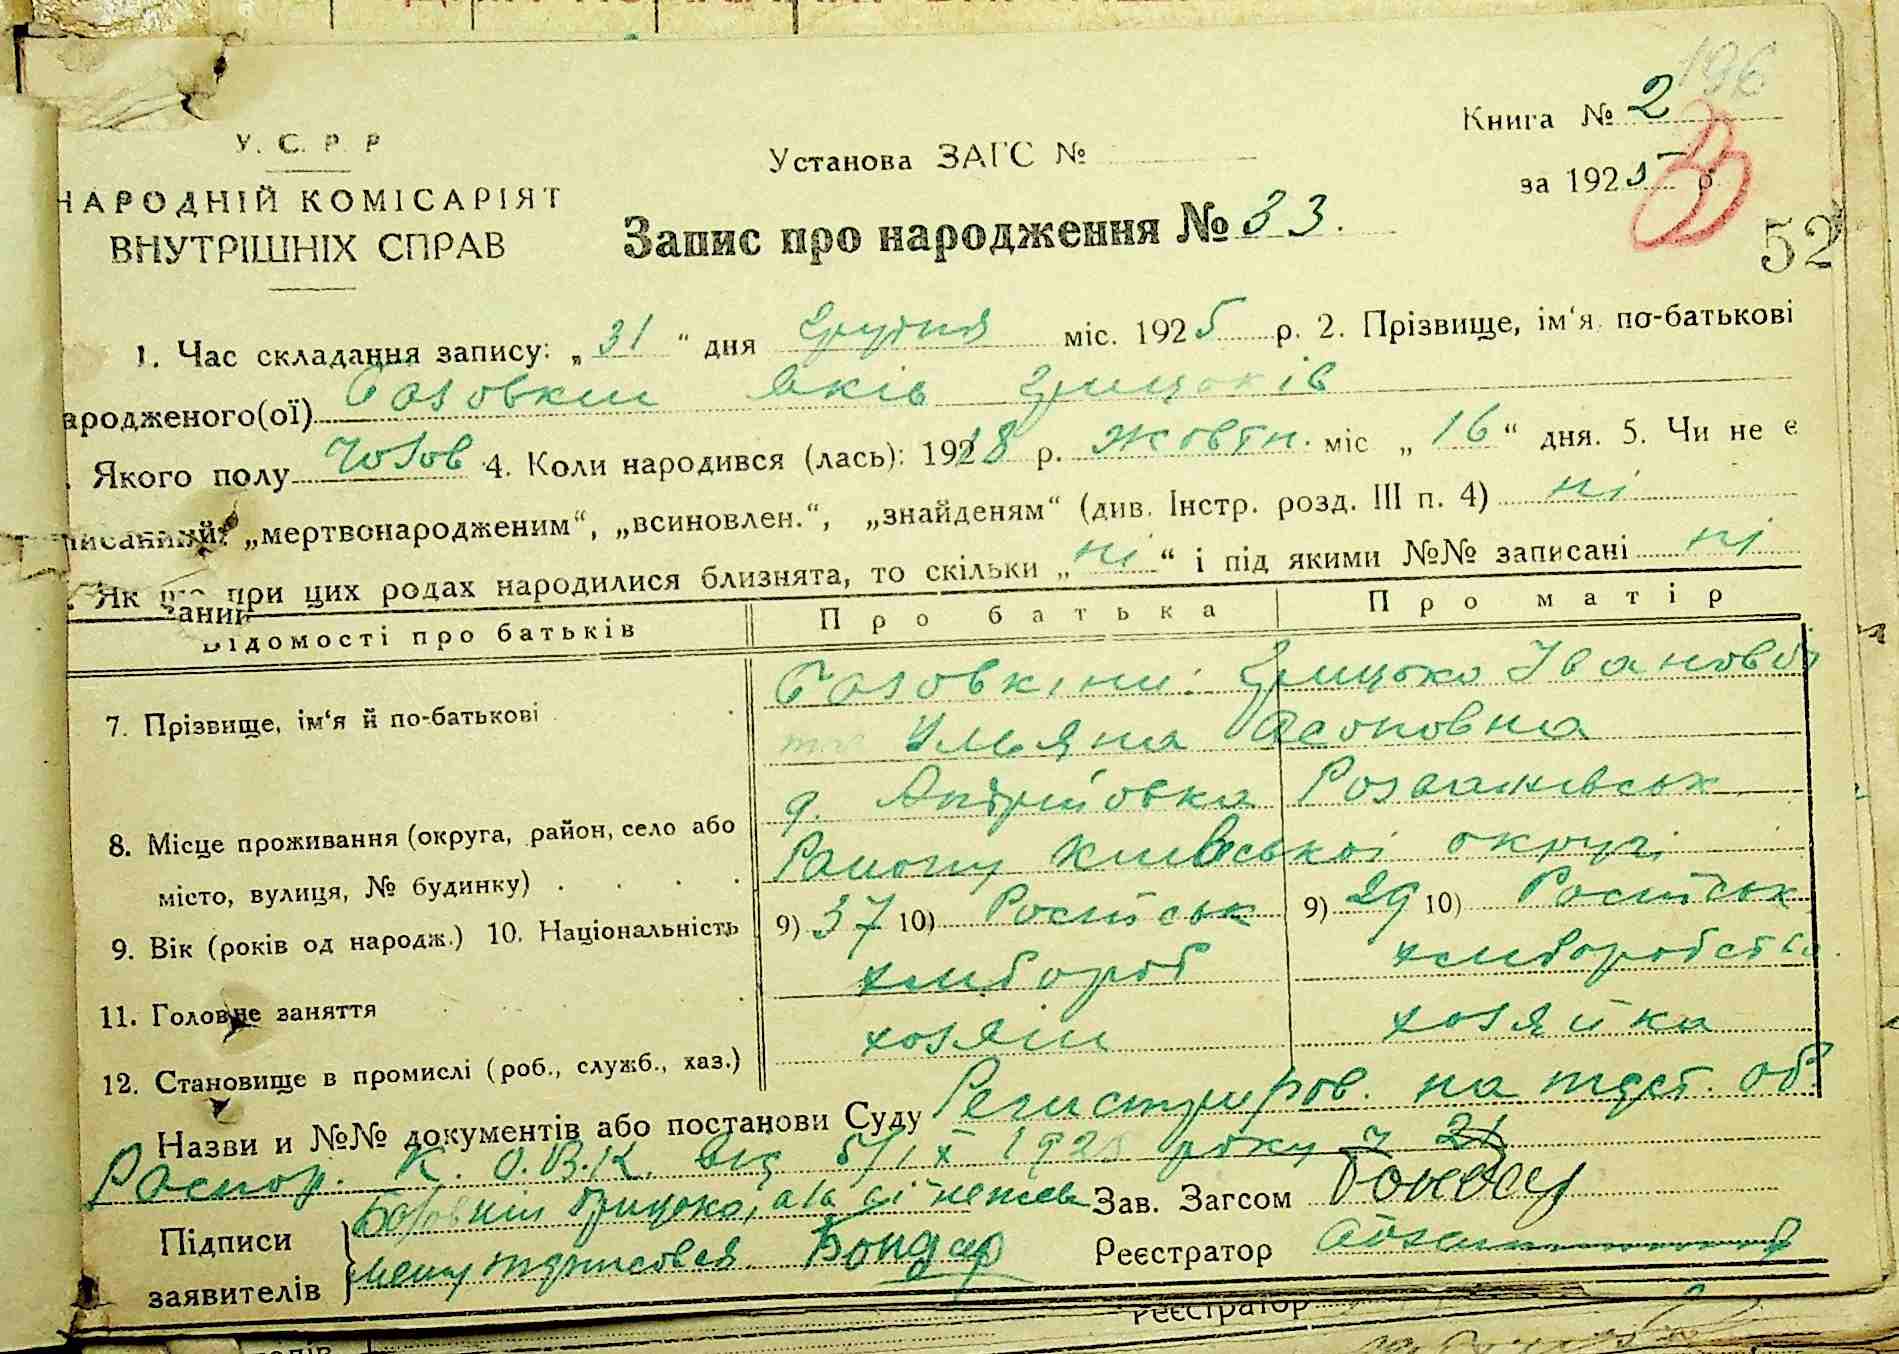 196
У. С. Р. Р
НАРОДНІЙ КОМІСАРІЯТ
ВНУТРІШНІХ СПРАВ
Установа ЗАГС №
Книга № 2
за 1925 р
52
Запис про народження № 33.
1. Час складання запису: „31“ дня Грудня міс. 1925 р. 2. Прізвище, ім‘я по-батькові
ародженого(ої) Базовкин Яків Грицьків
Якого полу Чолов 4. Коли народився (лась): 1918 р. Жовтн. міс „16“ дня. 5. Чи не є
писаний „мертвонародженим“, „всиновлен.“, „знайденям“ (див. Інстр. розд. III п. 4) ні
Як що при цих родах народилися близнята, то скільки „ні“ і під якими №№ записані ні
заний
Відомості про батьків Про батька Про матір
7. Прізвище, ім‘я й по-батькові Базовкіни: Грицько Іванов
та Ульяна
8. Місце проживання (округа, район, село або
місто, вулиця, № будинку)
Андрійовка Розважівськ
Району Київської округи
9. Вік (років од народж.) 10. Національність 9) 37 10) Російськ 9) 29 10) Російськ
11. Головне заняття хлібороб хліборобство
12. Становище в промислі (роб., служб., хаз.) хозяін хозяйка
Назви и №№ документів або постанови Суду Регистриров. на підст. об.
Роспор. К. О.В.К. від 5/IX 1925 року
Підписи
заявителів
Базовкин Грицько, а за
підписовся Бондар
Зав. Загсом Бондар
Реєстратор
Реєстратор